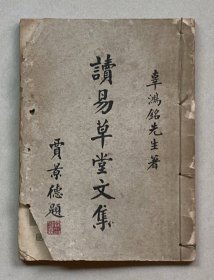 辜鴻銘先生著
讀易草堂文集
賈景德題